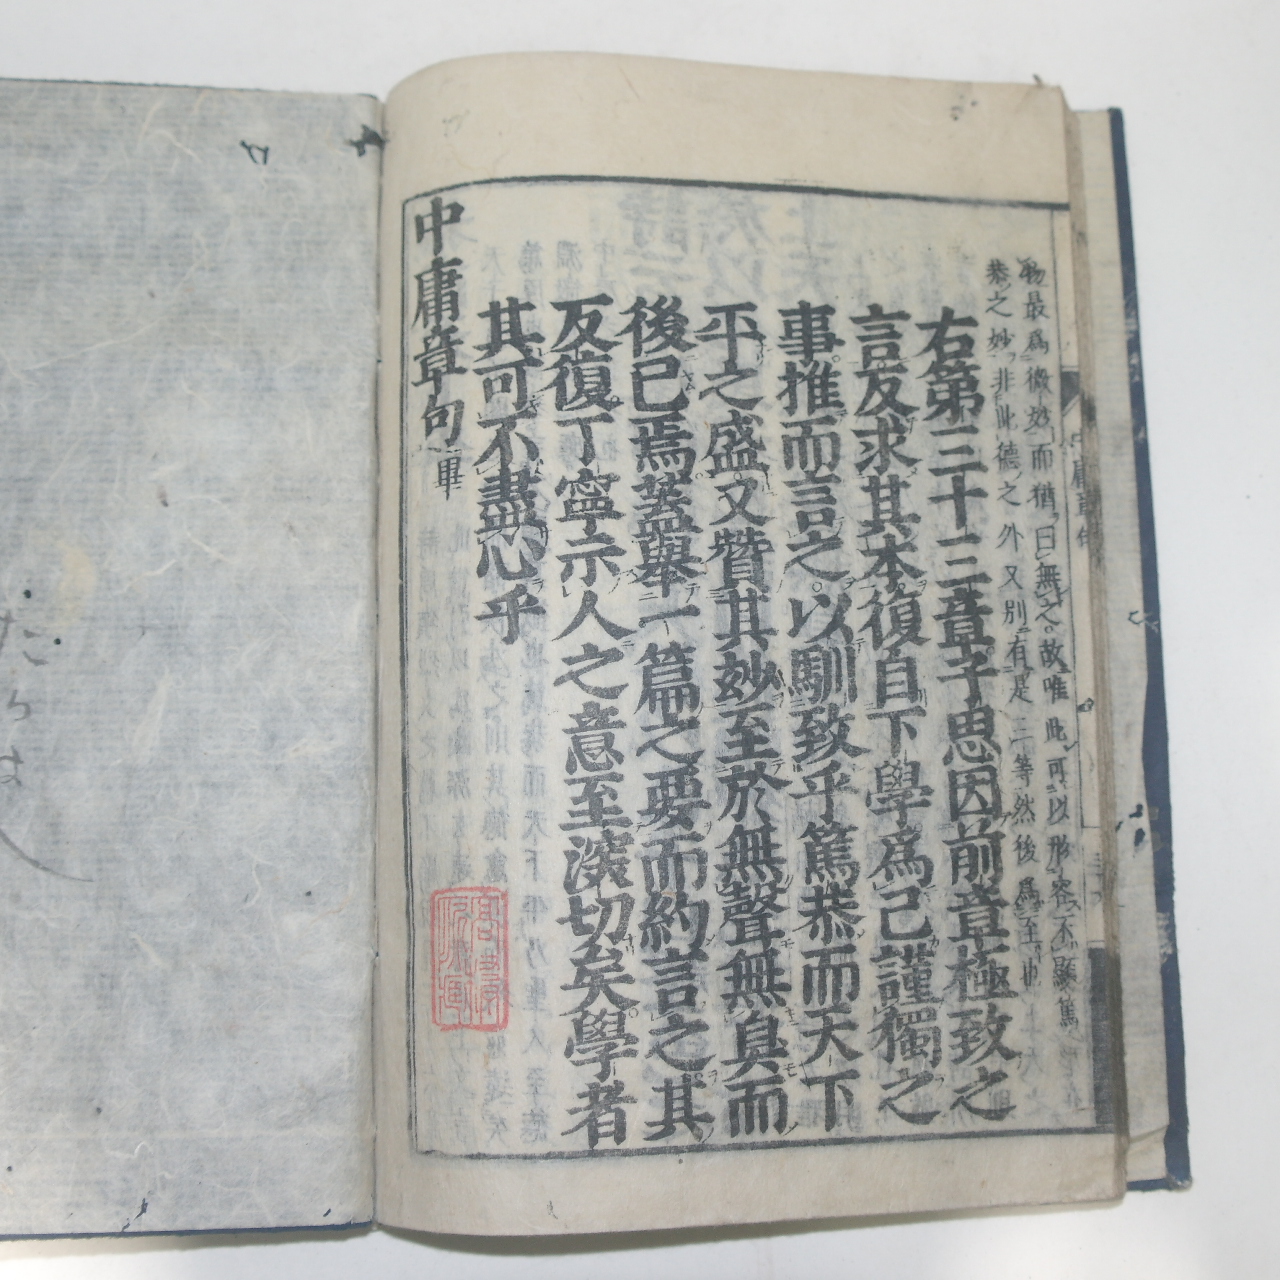 物最爲微妙而猶曰無之故唯此可以形容不顯篤
恭之妙非此德之外又別有是三等然後爲至也
右第三十三章子思因前章極致之
言反求其本復自下學爲己謹獨之
事推而言之以馴致乎篤恭而天下
平之盛又贊其妙至於無聲無臭而
後已焉蓋舉一篇之要而約言之其
反復丁寧示人之意至深切矣學者
其可不盡心乎
中庸章句畢